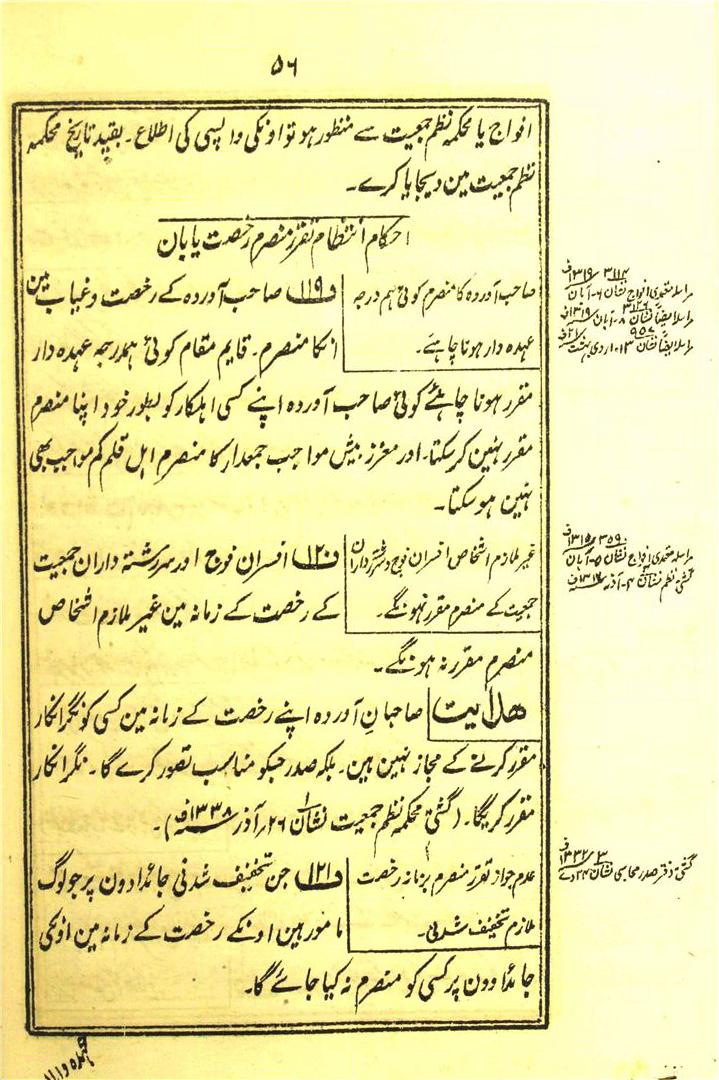 ۵۶
افواج یا محکمہ نظم جمعیت سے منظور ہو تو اونکی واپسی کی اطلاع۔ بقید تاریخ محکمہ
نظم جمعیت مین دیجایا کرے۔
احکام انتظام تقرر منصرم رخصت یابان
صاحب آوردہ کا منصرم کوئی ہم درجہ
عہدہ دار ہونا چاہئے۔
دفعہ ۱۱۹ صاحب آوردہ کے رخصت وغیاب مین
انکا منصرم۔ قایم مقام کوئی ہمدرجہ عہدہ دار
مقرر ہونا چاہئے کوئی صاحب آوردہ اپنے کسی اہلکار کو بطور خود اپنا منصرم
مقرر نہین کرسکتا۔ اور معزز بیش مواجب جمعدار کا منصرم اہل قلم کم مواجب بھی
نہین ہوسکتا۔
مراسلہ معتمدی افواج نشان ۳۱۱۴ ۶۔ آبان ۱۳۱۹ف
مراسلہ ایضاً نشان ۳۱۲۶ ۸۔ آبان ۱۳۱۹ف
مراسلہ ایضاً نشان ۹۵۷ ۱۳۔ اردی بہشت
غیر ملازم اشخاص افسران فوج وسررشتہ داران
جمعیت کے منصرم مقرر نہونگے۔
دفعہ ۱۲۰ افسران فوج اور سررشتہ داران جمعیت
کے رخصت کے زمانہ مین غیر ملازم اشخاص
منصرم مقرر نہ ہونگے۔
مراسلہ معتمدی افواج نشان ۳۵۹۰ ۵۔ آبان ۱۳۱۵ف
گشتی نظم نشان ۴۔ آذر
ھدایت صاحبانِ آوردہ اپنے رخصت کے زمانہ مین کسی کو نگرانکار
مقرر کرنے کے مجاز نہین ہین۔ بلکہ صدر جسکو مناسب تصور کرے گا۔ نگرانکار
مقرر کریگا۔ (گشتی محکمہ نظم جمعیت نشان ۱ ۲۶؍ آذر ۱۳۳۸ف)۔
عدم جواز تقرر منصرم بزمانہ رخصت
ملازم تخفیف شدنی۔
دفعہ ۱۲۱ جن تخفیف شدنی جائدادون پر جو لوگ
مامور ہین اونکے رخصت کے زمانہ مین اونکی
جائدادون پر کسی کو منصرم نہ کیا جائے گا۔
گشتی دفتر صدر محاسبی نشان ۳ ۲۴ دے ۱۳۳۲ف